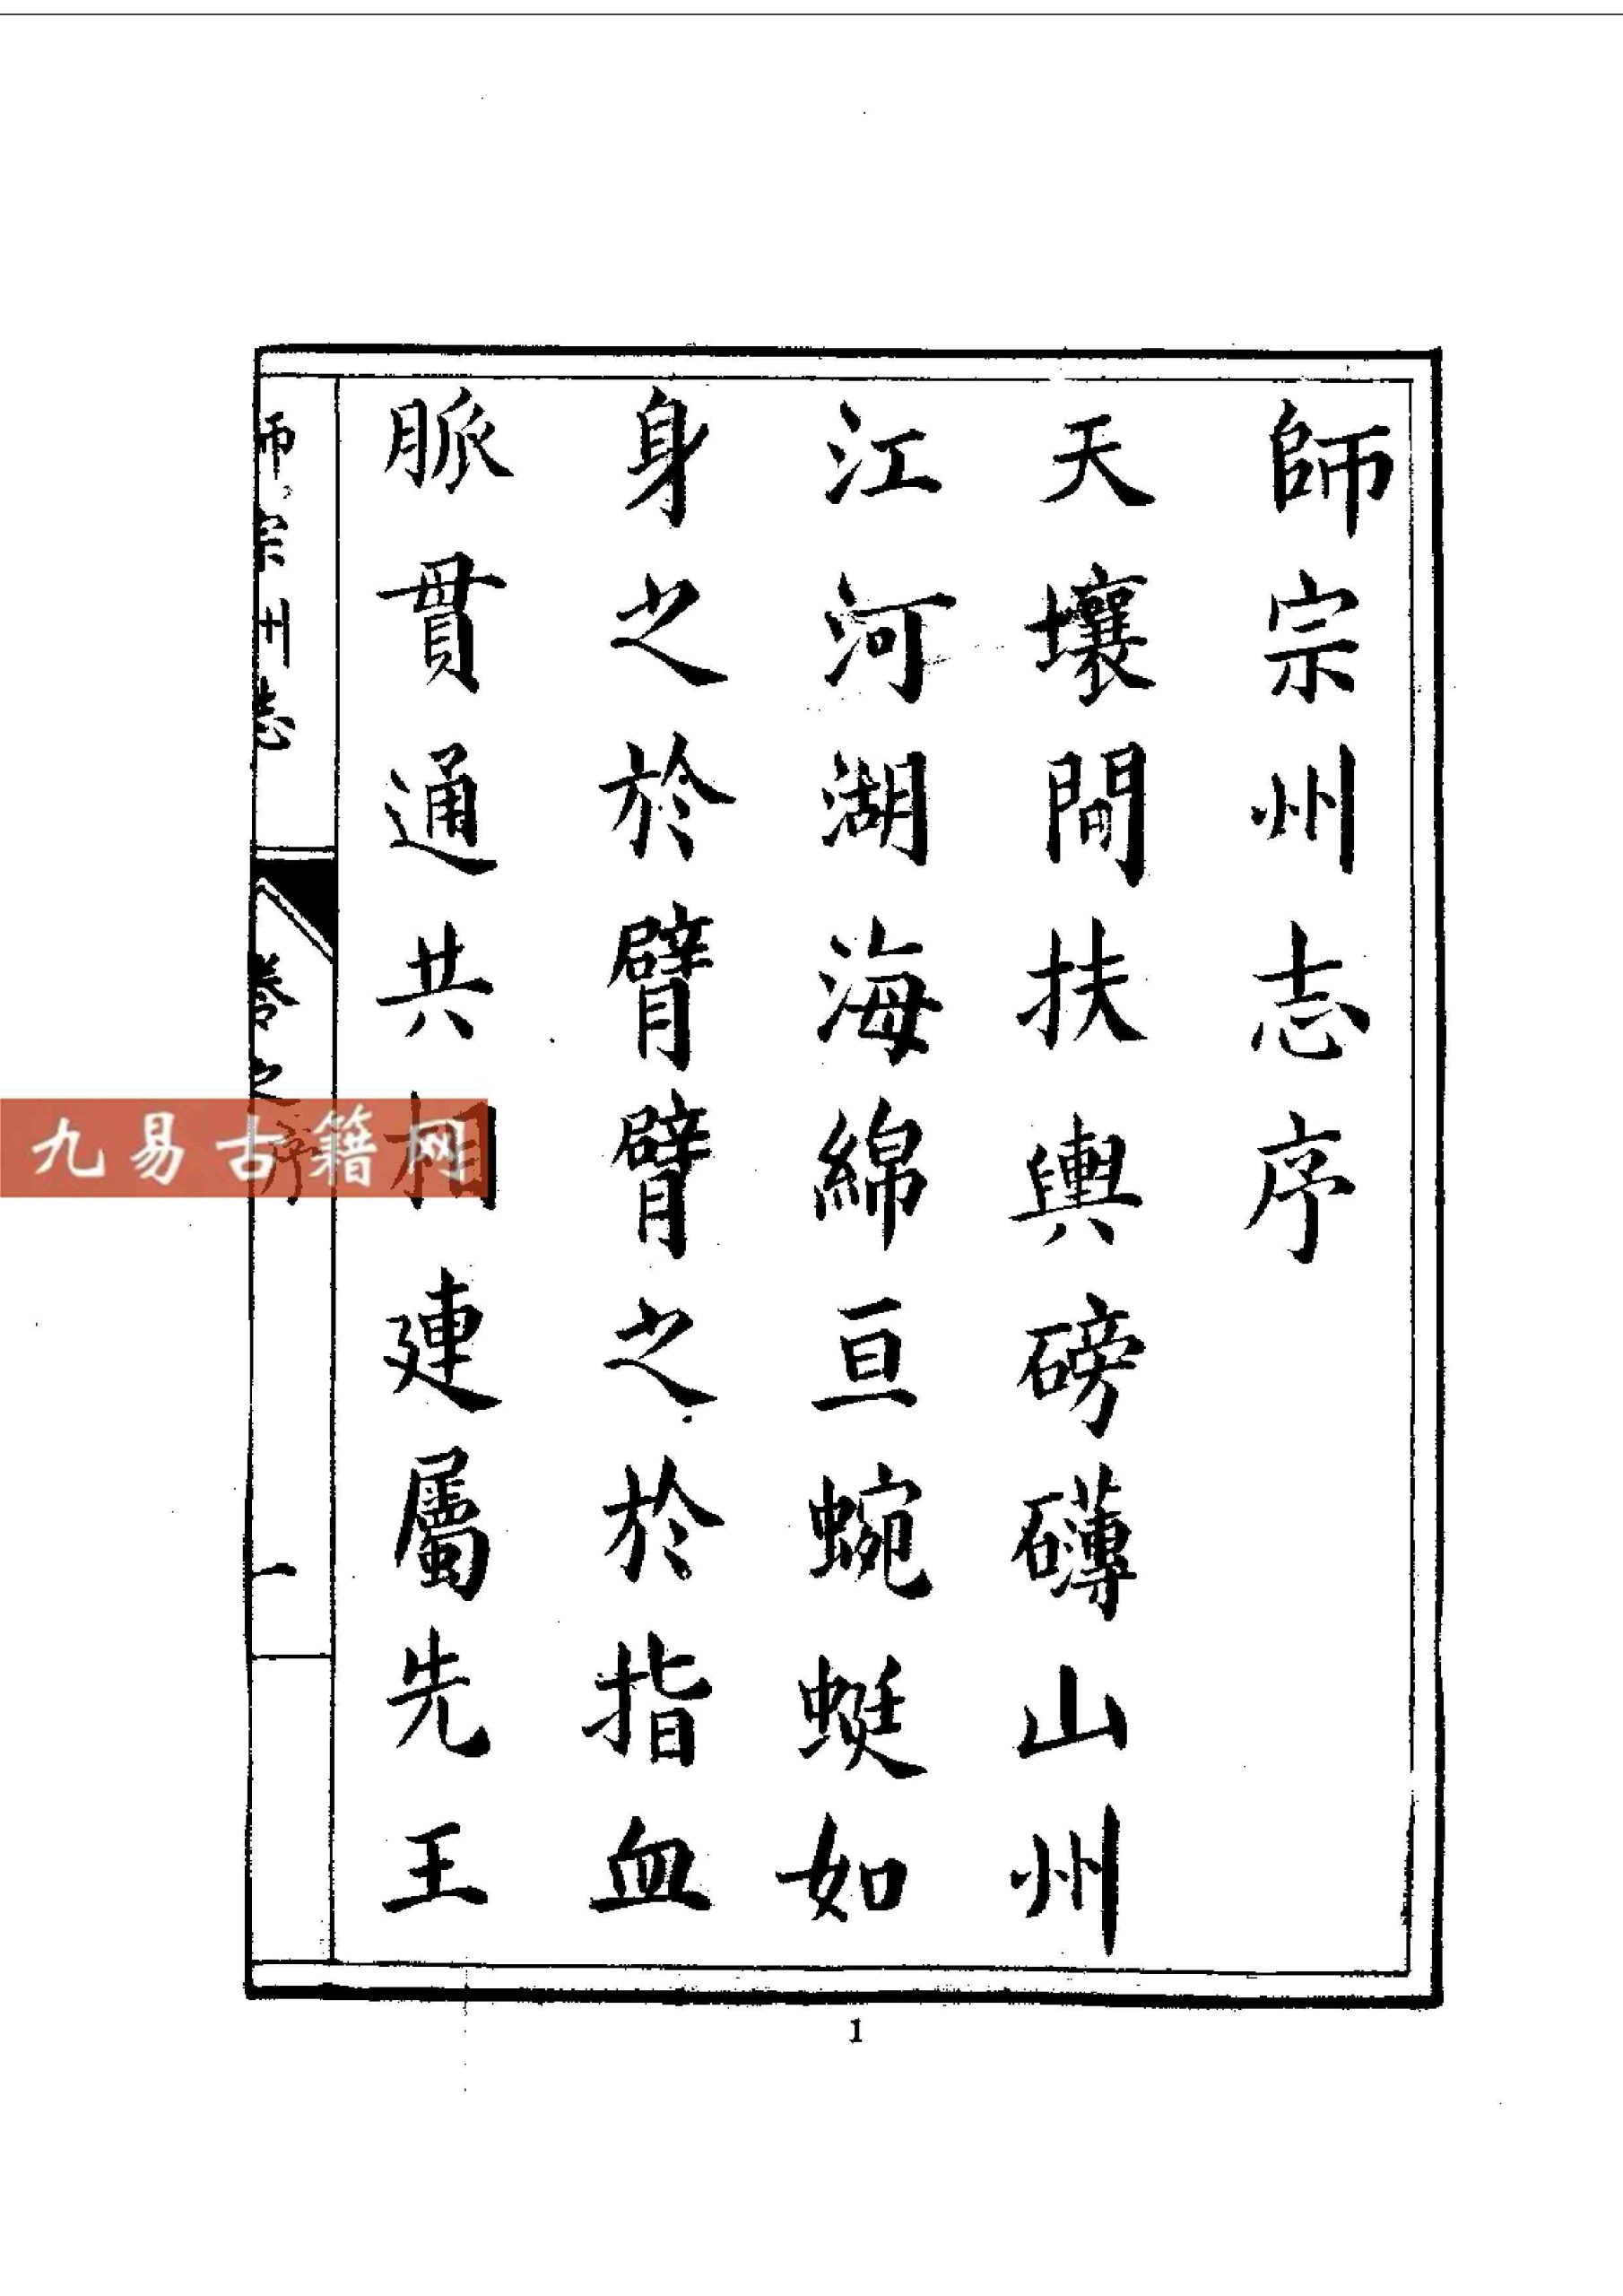 師宗州志序
天壤間扶輿磅礴山州
江河湖海綿亘蜿蜒如
身之於臂臂之於指血
脈貫通共相連屬先王
師宗州志 卷之序 一
九易古籍网
1